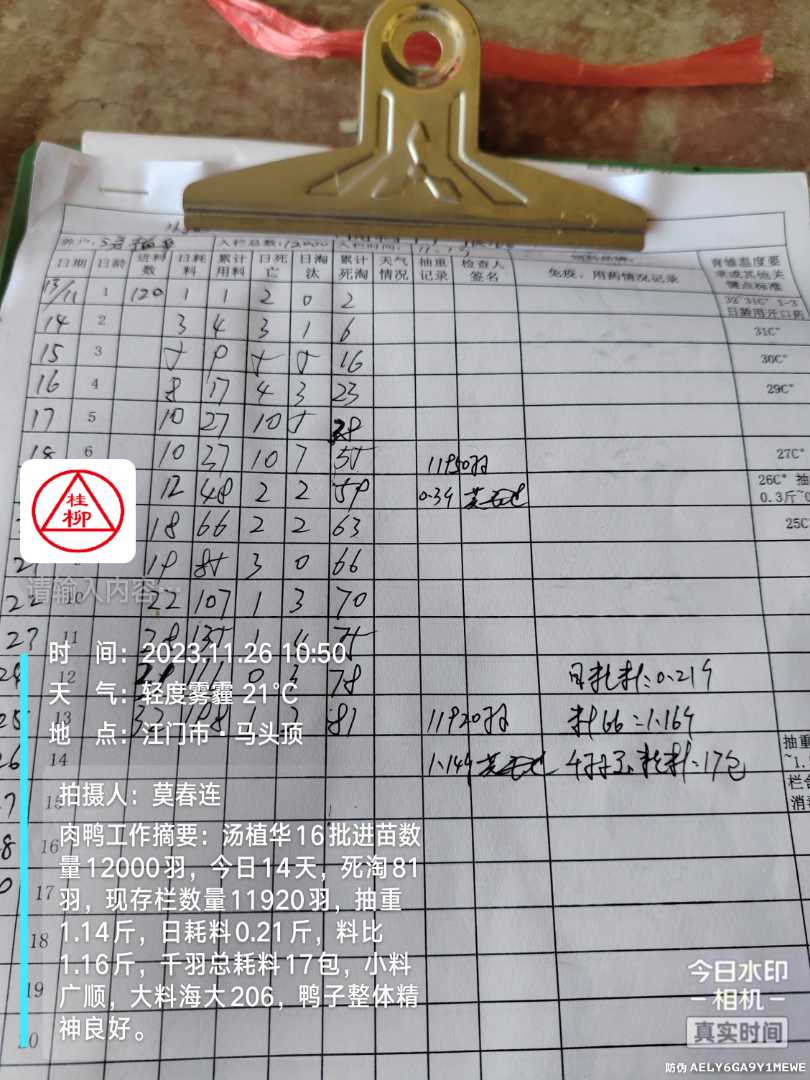 养户: 入栏总数:12000 入栏时间:
日期 日龄 进料数 日耗料 累计用料 日死亡 日淘汰 累计死淘 天气情况 抽重记录 检查人签名 免疫、用药情况记录 育雏温度要求或其他关键点标准
13/11 1 120 1 1 2 0 2 32~31C° 1-3日龄用开口药
14 2 3 4 3 1 6 31C°
15 3 5 9 5 5 16 30C°
16 4 8 17 4 3 23 29C°
17 5 10 27 10 5 38
18 6 10 37 10 7 55 11950羽 27C°
12 48 2 2 59 0.34 26C° 抽
0.3斤~0
18 66 2 2 63 25C°
21 19 85 3 0 66
22 10 22 107 1 3 70
23 11 28 135 1 4 75
24 12 0 3 78 日耗料:0.219
25 13 33 81 11920羽 料66=1.169
26 14 1.149 耗料:17包 抽重
15
16
17
18
19
20
桂柳
请输入内容…
时 间：2023.11.26 10:50
天 气：轻度雾霾 21°C
地 点：江门市·马头顶
拍摄人：莫春连
肉鸭工作摘要：汤植华16批进苗数
量12000羽，今日14天，死淘81
羽，现存栏数量11920羽，抽重
1.14斤，日耗料0.21斤，料比
1.16斤，千羽总耗料17包，小料
广顺，大料海大206，鸭子整体精
神良好。
今日水印
相机
真实时间
防伪 AELY6GA9Y1MEWE